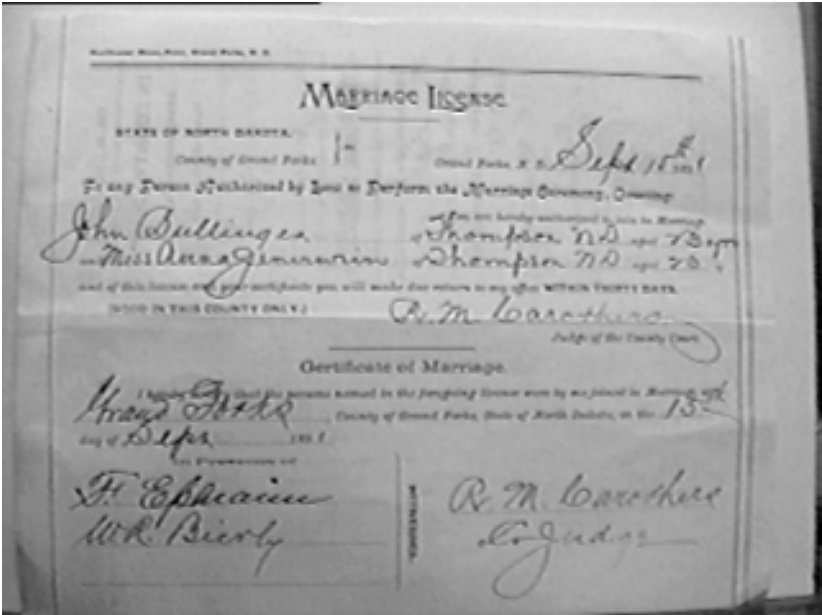 Grand Forks, N. D.
MARRIAGE LICENSE.
STATE OF NORTH DAKOTA,
County of Grand Forks. } ss
Grand Forks, N. D. Sept 15th
To any Person Authorized by Law to Perform the Marriage Ceremony, Greeting:
You are hereby authorized to join in Marriage
John Bullinger of Thompson ND aged
and Miss Anna of Thompson ND aged
and of this license and your certificate you will make due return to my office WITHIN THIRTY DAYS.
(GOOD IN THIS COUNTY ONLY.) R. M. Carothers
Judge of the County Court.
Certificate of Marriage.
I hereby certify that the persons named in the foregoing license were by me joined in Marriage at
Grand Forks, County of Grand Forks, State of North Dakota, on the 15th
day of Sept
In Presence of
F. Ephraim
W.R. Bierly
WITNESSES.
R. M. Carothers
Co Judge